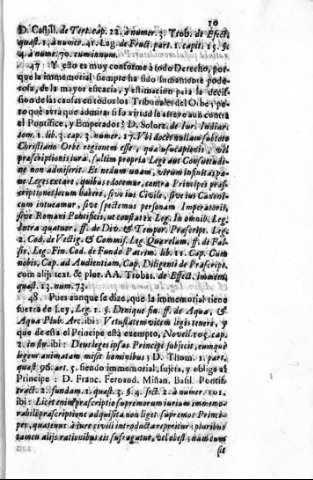 10
D. Castill. de Tert. cap. 22. à numer. 3. Trob. de Effect.
quæst. 1. à numer. 41. Lag. de Fruct. part. 1. capit. 15. §.
4. à num. 70.
47. Y esto es muy conforme à todo Derecho, por-
que la immemorial siempre ha sido sumamente pode-
rosa, de la mayor eficacia, y estimacion para la deciś-
sion de las causas en todos los Tribunales del Orbe; pe-
ro que avrà que admirar si su virtud se atrevò aun contra
el Pontifice, y Emperador? D. Solorz. de Iur. Indiar.
tom. 1. lib. 3. cap. 3. numer. 17. Vbi docet nullum esse in
Christiano Orbe regionem esse, qua usucapionis, vel
præscriptionis iura, saltim propria Lege aut Consuetudi-
ne non admiserit. Et nedum unam, virum infinitas pæ-
ne Leges extare, quibus edocemur, contra Principes præs-
criptionis locum habere, sive ius Civile, sive ius Canoni-
cum intueamur, sive spectemus personam Imperatoris,
sive Romani Pontificis, ut constat ex Leg. In omnib. Leg.
intra quatuor, ff. de Div. & Tempor. Præscript. Leg.
2. Cod. de Vectig. & Commiss. Leg. Querelam, ff. de Fal-
sis, Leg. Fin. Cod. de Fund. Patrim. lib. 11. Cap. Cum
nobis, Cap. ad Audientiam, Cap. Diligenti de Præscript.
cum alijs text. & plur. AA. Trobat. de Effect. immem.
quæst. 13. num. 73.
48. Pues aunque se dize, que la immemorial tiene
fuerça de Ley, Leg. 1. §. Denique fin. ff. de Aqua, &
Aqua Pluv. Arc. ibi: Vetustatem vicem legis tenere, y
que de esta el Principe està exempto, Novell. 105. cap.
2. in fin. ibi: Deus leges ipsas Principi subjecit, eumque
legem animatam misit hominibus; D. Thom. 1. part.
quæst. 96. art. 5. siendo immemorial, sujeta, y obliga al
Principe: D. Franc. Ferrand. Miñan. Basil. Pontif.
tract. 2. fundam. 1. quæst. 3. §. 4. sect. 2. à numer. 101.
ibi: Licet enim præscriptio supremorum iurium immemo-
rabili præscriptione adquisita non liget supremos Princi-
pes, quatenus à iure civili introducta reperitur; pluribus
tamen alijs rationibus eis suffragatur, vel obest; nam cum
sit